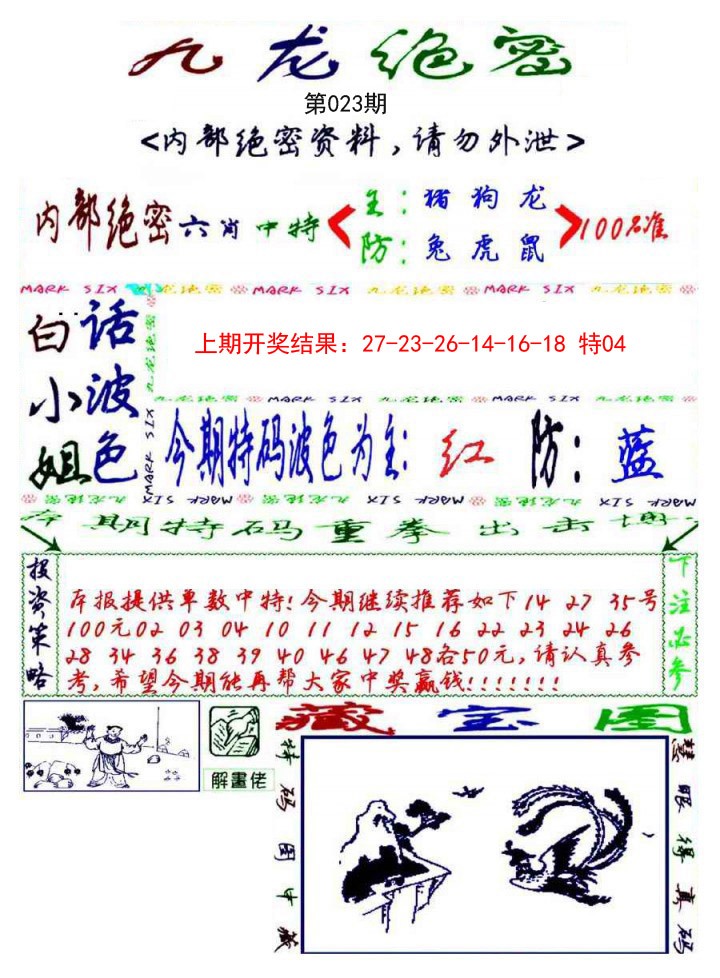 九龙绝密
第023期
<内部绝密资料,请勿外泄>
内部绝密六肖中特
主:猪狗龙
防:兔虎鼠
100%准
MARK SIX 九龙绝密 MARK SIX 九龙绝密 MARK SIX 九龙绝密
白话小波姐色
九龙绝密
MARK SIX
上期开奖结果：27-23-26-14-16-18 特04
九龙绝密 MARK SIX 九龙绝密 MARK SIX 九龙绝密
今期特码波色为主:红 防:蓝
九龙绝密 MARK SIX 九龙绝密 MARK SIX 九龙绝密 MARK SIX
本期特码重拳出击
投资策略
本报提供单数中特!今期继续推荐如下14 27 35号
100元02 03 04 10 11 12 15 16 22 23 24 26
28 34 36 38 39 40 46 47 48各50元,请认真参
考,希望今期能再帮大家中奖赢钱!!!!!!!
下注必参
解畫佬
藏宝图
特码图中藏
慧眼得真码